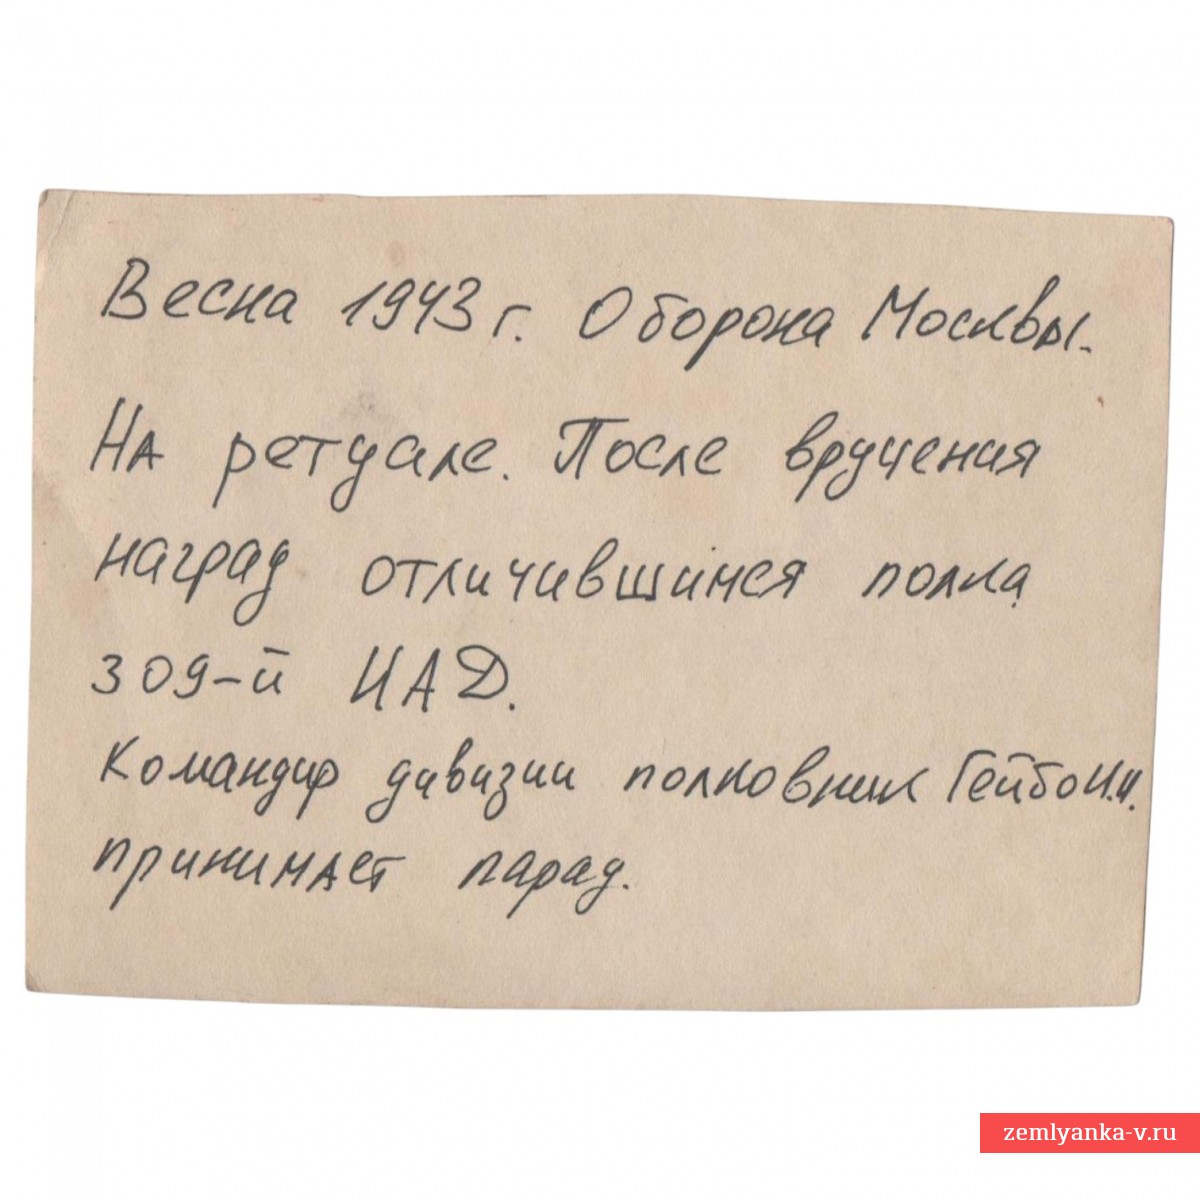 Весна 1943 г. Оборона Москвы.
На ретуале. После вручения
наград отличившимся полка
309-й ИАД.
Командир дивизии полковник Гейбо И.И.
принимает парад.
zemlyanka-v.ru